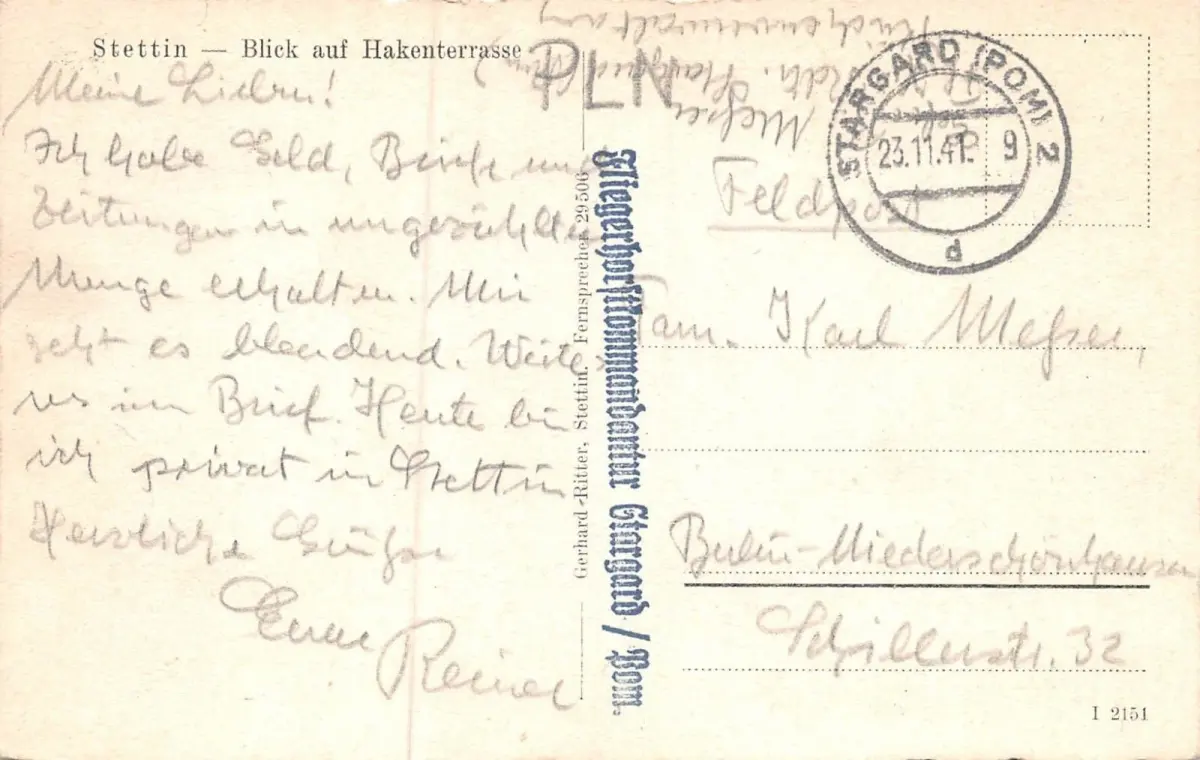 Stettin — Blick auf Hakenterrasse
Meine Lieben!
Ich habe Geld, Briefe und
Zeitungen in ungezählter
Menge erhalten. Mir
geht es blendend. Weite-
res im Brief. Heute bin
ich privat in Stettin
Herzliche Grüße
Euer
Reiner
Gerhard Ritter, Stettin. Fernsprecher 29506
Fliegerhorstkommandantur Stargard / Pom.
PLN
STARGARD (POM) 2
23.11.41. 9
d
Feldpost
Fam. Karl Meyer,
Berlin-Niederschönhausen
Schillerstr. 32
I 2151